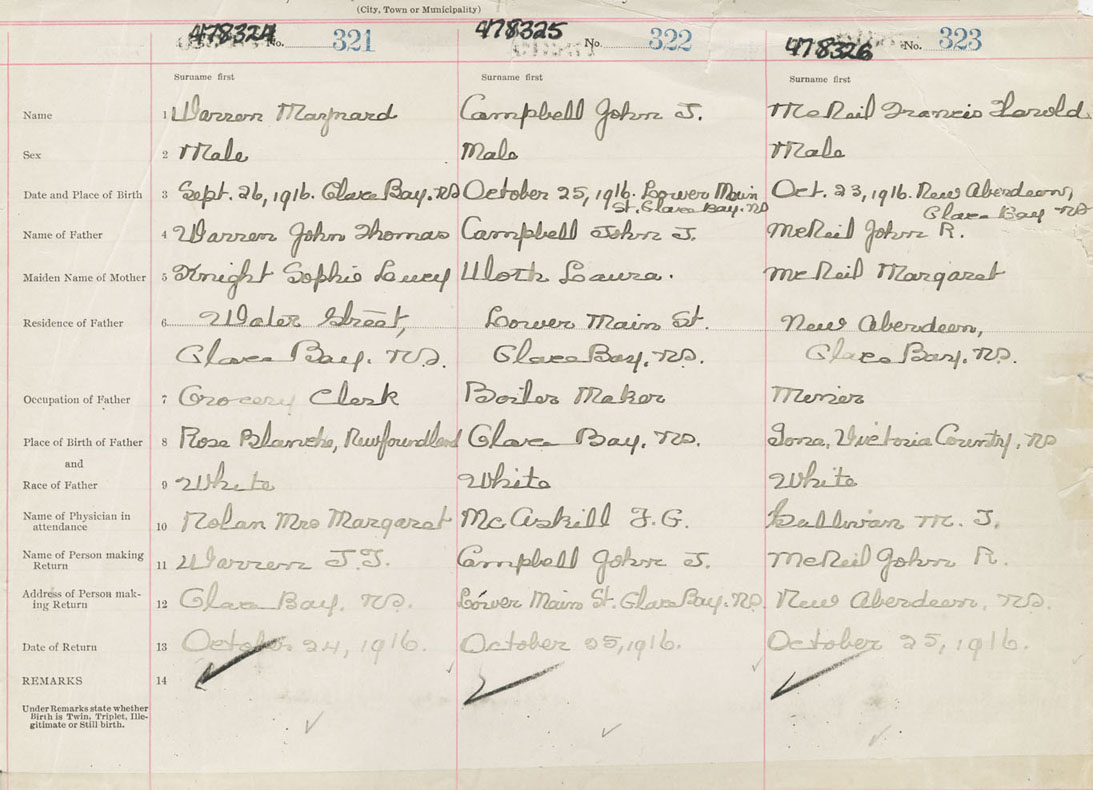 (City, Town or Municipality)
478324 No. 321 478325 No. 322 478326 No. 323
Surname first Surname first Surname first
Name 1 Warren Maynard Campbell John J. McNeil Francis Harold
Sex 2 Male Male Male
Date and Place of Birth 3 Sept. 26, 1916. Glace Bay. NS October 25, 1916. Lower Main Oct. 23, 1916. New Aberdeen,
St. Glace Bay. NS Glace Bay NS
Name of Father 4 Warren John Thomas Campbell John J. McNeil John R.
Maiden Name of Mother 5 Knight Sophie Lucey Laura. McNeil Margaret
Residence of Father 6 Water Street, Lower Main St. New Aberdeen,
Glace Bay. NS. Glace Bay, NS. Glace Bay, NS.
Occupation of Father 7 Grocery Clerk Boiler Maker Miner
Place of Birth of Father 8 Rose Blanche, Newfoundland Glace Bay, NS. Iona, Victoria County, NS
and
Race of Father 9 White White White
Name of Physician in
attendance 10 Nolan Mrs Margaret McAskill F. G. M. J.
Name of Person making
Return 11 Warren J.T. Campbell John J. McNeil John R.
Address of Person mak-
ing Return 12 Glace Bay, NS. Lower Main St. Glace Bay. NS. New Aberdeen, NS.
Date of Return 13 October 24, 1916. October 25, 1916. October 25, 1916.
REMARKS 14
Under Remarks state whether
Birth is Twin, Triplet, Ille-
gitimate or Still birth.